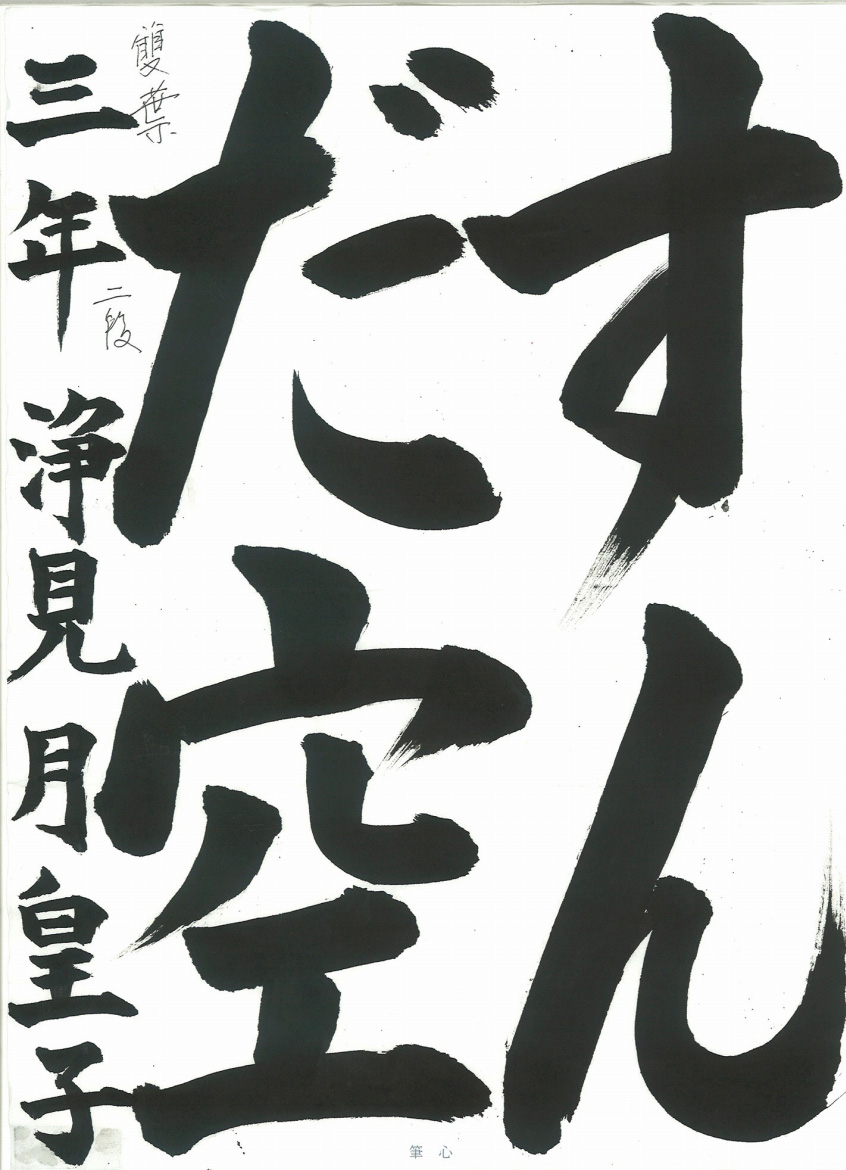 すん
だ空
雙葉
二段
三年 浄見 月皇子
筆心